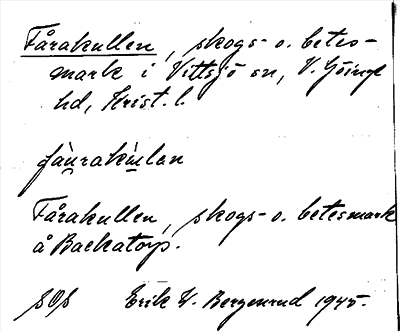 Fårakullen, skogs- o. betes-
mark i Vittsjö sn, V. Göinge
hd, Krist. l.
Fårakullen, skogs- o. betesmark
å Backatorp.
Erik W. Bergenrud 1945.